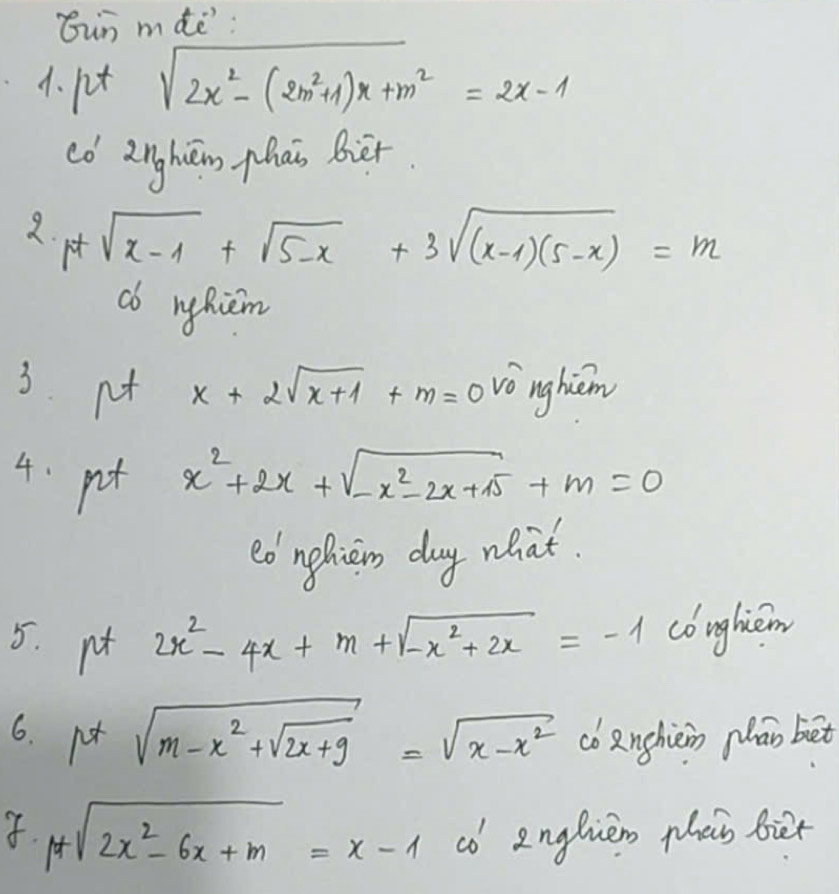 Tìm m để :
1. pt √(2x² - (2m²+1)x + m²) = 2x - 1
có 2 nghiệm phân biệt .
2. pt √(x-1) + √(5-x) + 3√((x-1)(5-x)) = m
có nghiệm
3. pt x + 2√(x+1) + m = 0 vô nghiệm
4. pt x² + 2x + √(-x² - 2x + 15) + m = 0
có nghiệm duy nhất .
5. pt 2x² - 4x + m + √(-x² + 2x) = -1 có nghiệm
6. pt √(m - x² + √(2x+9)) = √(x - x²) có 2 nghiệm phân biệt
7. pt √(2x² - 6x + m) = x - 1 có 2 nghiệm phân biệt